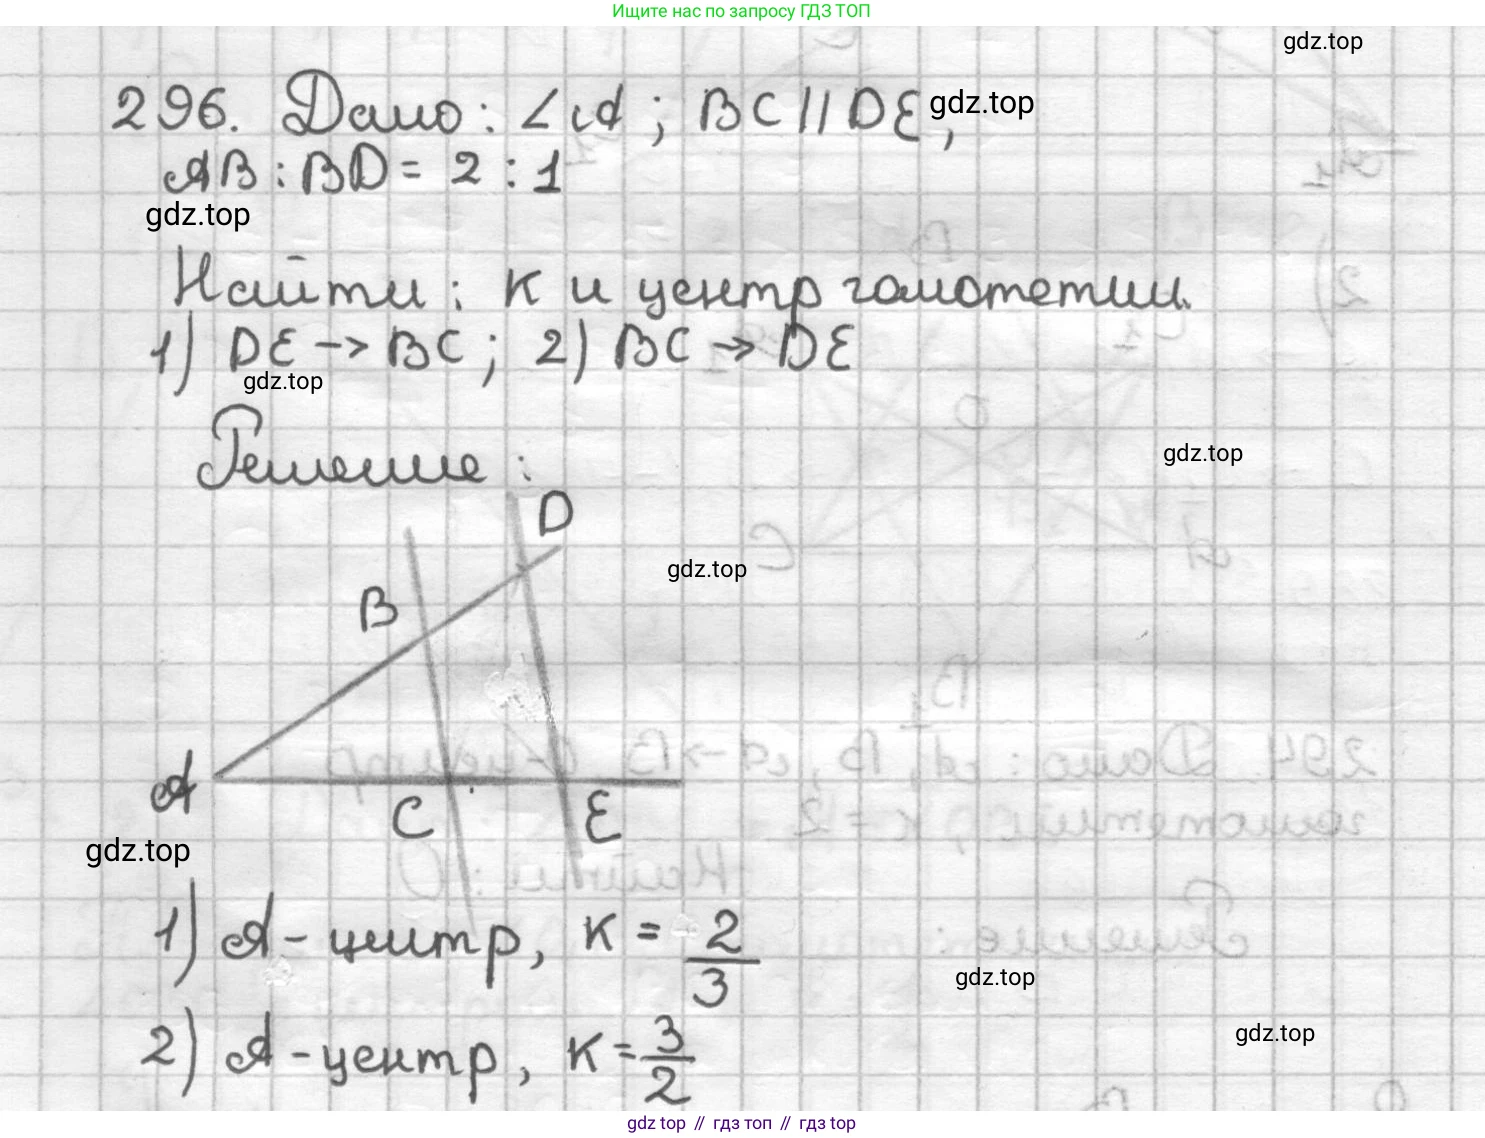 Ищите нас по запросу ГДЗ ТОП
gdz.top
296. Дано: ∠A; BC || DE, gdz.top
AB : BD = 2 : 1
gdz.top
Найти: K и центр гомотетии.
1) DE → BC; 2) BC → DE
gdz.top
Решение:
gdz.top
D
gdz.top
B
A
C E
gdz.top
1) A - центр, K = 2/3
gdz.top
2) A - центр, K = 3/2
gdz.top
gdz top // гдз топ // гдз top